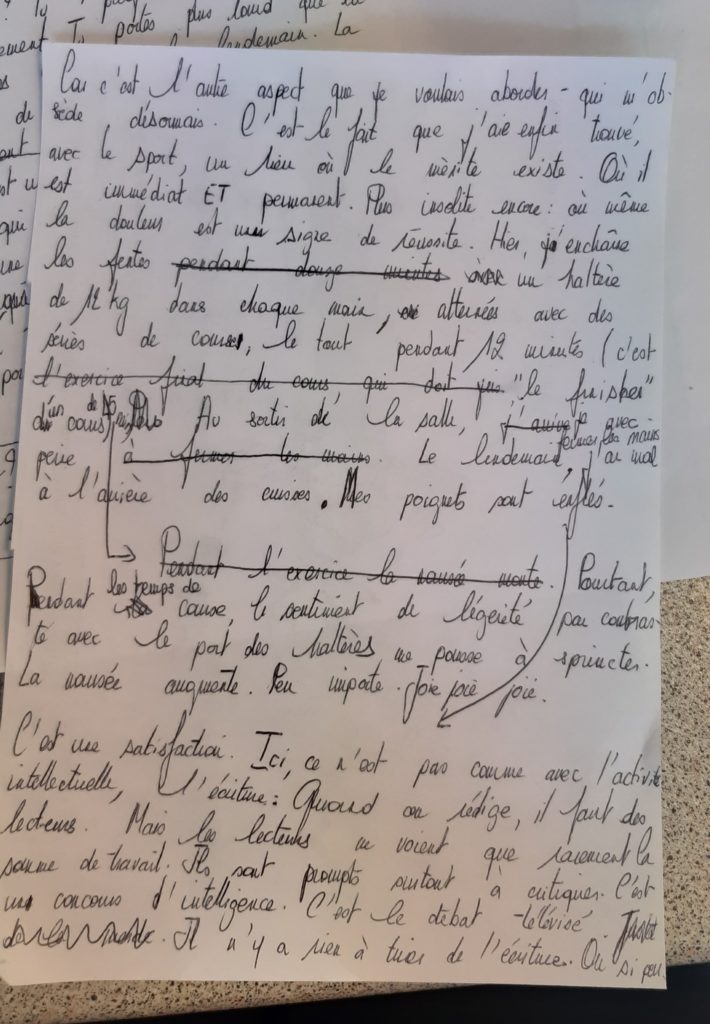 Car c'est l'autre aspect que je voulais aborder - qui m'ob-
sède désormais. C'est le fait que j'aie enfin trouvé,
avec le sport, un lieu où le mérite existe. Où il
est immédiat ET permanent. Plus insolite encore : où même
la douleur est un signe de réussite. Hier, j'enchaîne
les fentes pendant douze minutes un haltère
de 12 kg dans chaque main, alternées avec des
séries de course, le tout pendant 12 minutes (c'est
l'exercice final du cours, qui doit "le finisher"
d'un cours de Au sortir de la salle, j'arrive je avec
fermer les mains
peine à fermer les mains. Le lendemain, j'ai mal
à l'arrière des cuisses. Mes poignets sont enflés.
Pendant l'exercice la nausée monte. Pourtant,
Pendant les temps de course, le sentiment de légèreté par contras-
te avec le port des haltères me pousse à sprinter.
La nausée augmente. Peu importe. Joie joie joie.
C'est une satisfaction. Ici, ce n'est pas comme avec l'activité
intellectuelle, l'écriture : Quand on rédige, il faut des
lecteurs. Mais les lecteurs ne voient que rarement la
somme de travail. Ils sont prompts surtout à critiquer. C'est
un concours d'intelligence. C'est le débat télévisé.
Il n'y a rien à tirer de l'écriture. Ou si peu